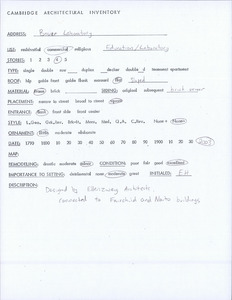 CAMBRIDGE ARCHITECTURAL INVENTORY
ADDRESS: Bauer Laboratory
USE: residential commercial religious Education/Laboratory
STORIES: 1 2 3 4 5
TYPE: single double row duplex decker double tenement apartment
ROOF: hip gable front gable flank mansard flat
MATERIAL: frame brick SIDING: original subsequent
PLACEMENT: narrow to street broad to street
ENTRANCE: front front side front center
STYLE:
ORNAMENT: little moderate elaborate
DATE: 1750 1800 10 20 30 40 50 60 70 80 90 1900 10 20 30 2003
MAP:
REMODELING: drastic moderate minor CONDITION: poor fair good excellent
IMPORTANCE TO SETTING: detrimental moderate great INITIALED: EH
DESCRIPTION:
Designed by Ellenzweig Architects
connected to Fairchild and Naito buildings